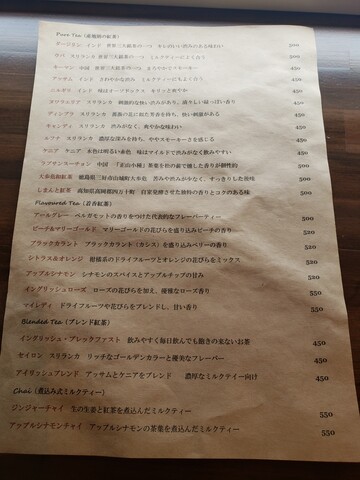 Pure Tea (産地別の紅茶)
ダージリン インド 世界三大銘茶の一つ キレがいい渋みのある味わい 500
ウバ スリランカ 世界三大銘茶の一つ ミルクティーによく合う 500
キーマン 中国 世界三大銘茶の一つ まろやかでスモーキー 500
アッサム インド さわやかな渋み ミルクティーにもよく合う 450
ニルギリ インド 味はオーソドックス キリッと爽やか 450
ヌワラエリア スリランカ 刺激的な快い渋みがあり、緑々しい草っぽい香り 450
ディンブラ スリランカ 薔薇の花に似た芳香を持ち、快い刺激がある 450
キャンディ スリランカ 渋みがなく、爽やかな味わい 450
ルフナ スリランカ 濃厚な深みを持ち、ややスモーキーさを感じる 450
ケニア ケニア 水色は明るい赤色 味はマイルドで渋みがなく飲みやすい 450
ラプサンスーチョン 中国 「正山小種」茶葉を松の薪で燻した香りが個性的 450
大歩危和紅茶 徳島県三好市山城町大歩危 苦みや渋みが少なく、すっきりした後味 500
しまんと紅茶 高知県高岡郡四万十町 自家発酵させた独特の香りとコクのある味 500
Flavoured Tea (着香紅茶)
アールグレー ベルガモットの香りをつけた代表的なフレーバーティー 500
ピーチ&マリーゴールド マリーゴールドの花びらを盛り込みピーチの香り 520
ブラックカラント ブラックカラント(カシス)を盛り込みベリーの香り 520
シトラス&オレンジ 柑橘系のドライフルーツとオレンジの花びらをミックス 520
アップルシナモン シナモンのスパイスとアップルチップの甘み 520
イングリッシュローズ ローズの花びらを加え、優雅なローズ香り 520
マイレディ ドライフルーツや花びらをブレンドし、甘い香り 520
Blended Tea (ブレンド紅茶) 450
イングリッシュ・ブレックファスト 飲みやすく毎日飲んでも飽きの来ないお茶 450
セイロン スリランカ リッチなゴールデンカラーと優美なフレーバー 450
アイリッシュブレンド アッサムとケニアをブレンド 濃厚なミルクテイー向け 450
Chai (煮込み式ミルクティー)
ジンジャーチャイ 生の生姜と紅茶を煮込んだミルクティー 550
アップルシナモンチャイ アップルシナモンの茶葉を煮込んだミルクティー 550